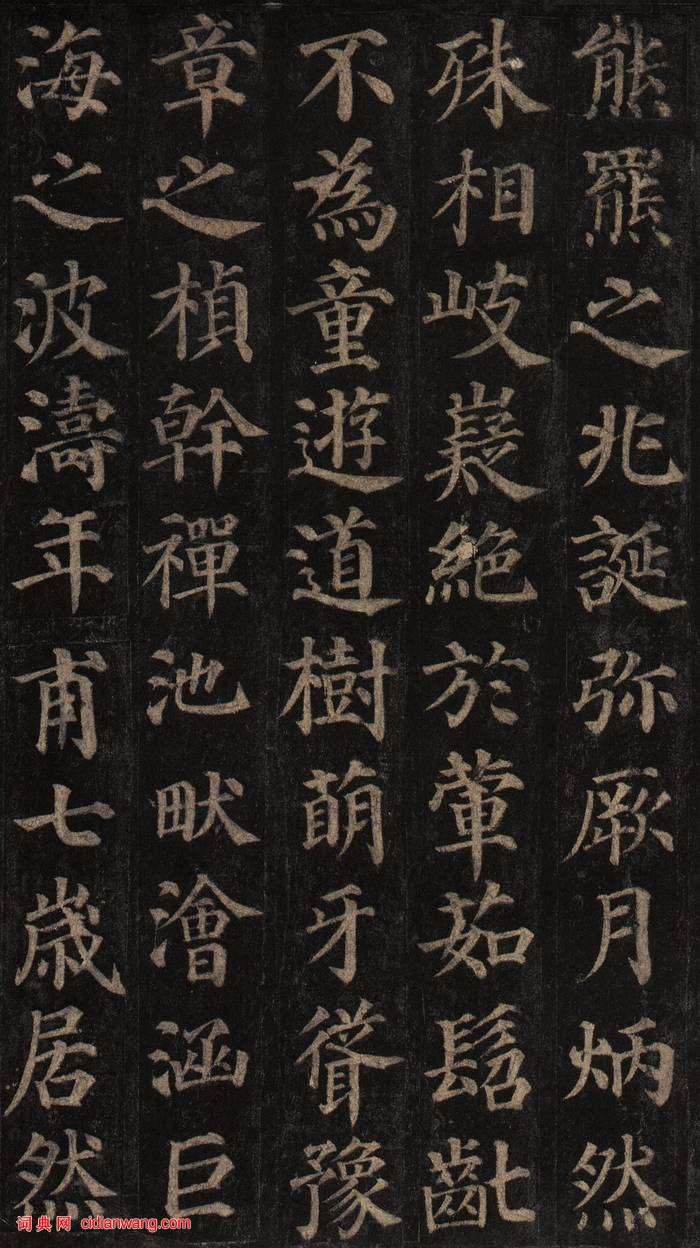 熊羆之兆誕弥厥月炳然
殊相岐嶷絕於葷茹髫齓
不為童遊道樹萌牙聳豫
章之楨幹禪池畎澮涵巨
海之波濤年甫七歲居然
词典网 cidianwang.com